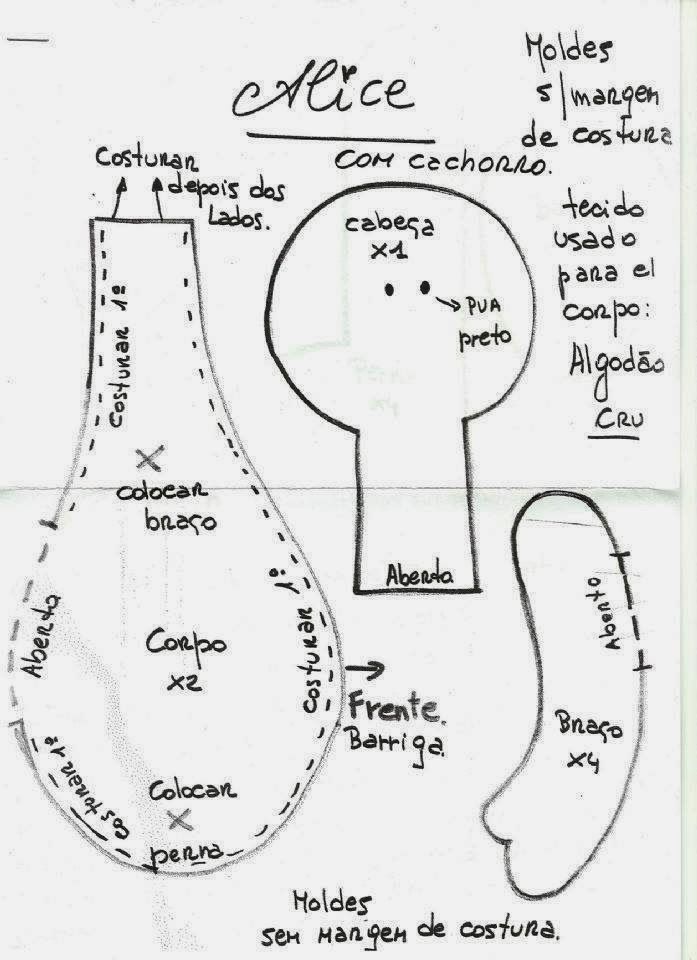 Alice
com cachorro.
Moldes
s/margem
de costura
tecido
usado
para el
corpo:
Algodão
CRU
Costurar
depois dos
Lados.
Costurar 1º
X
colocar
braço
Aberta
Corpo
x2
Costurar 1º
Costurar 1º
Colocar
X
perna
Frente.
Barriga.
cabeça
x1
PUA
preto
Aberta
Aberto
Braço
x4
Moldes
sem margem de costura.